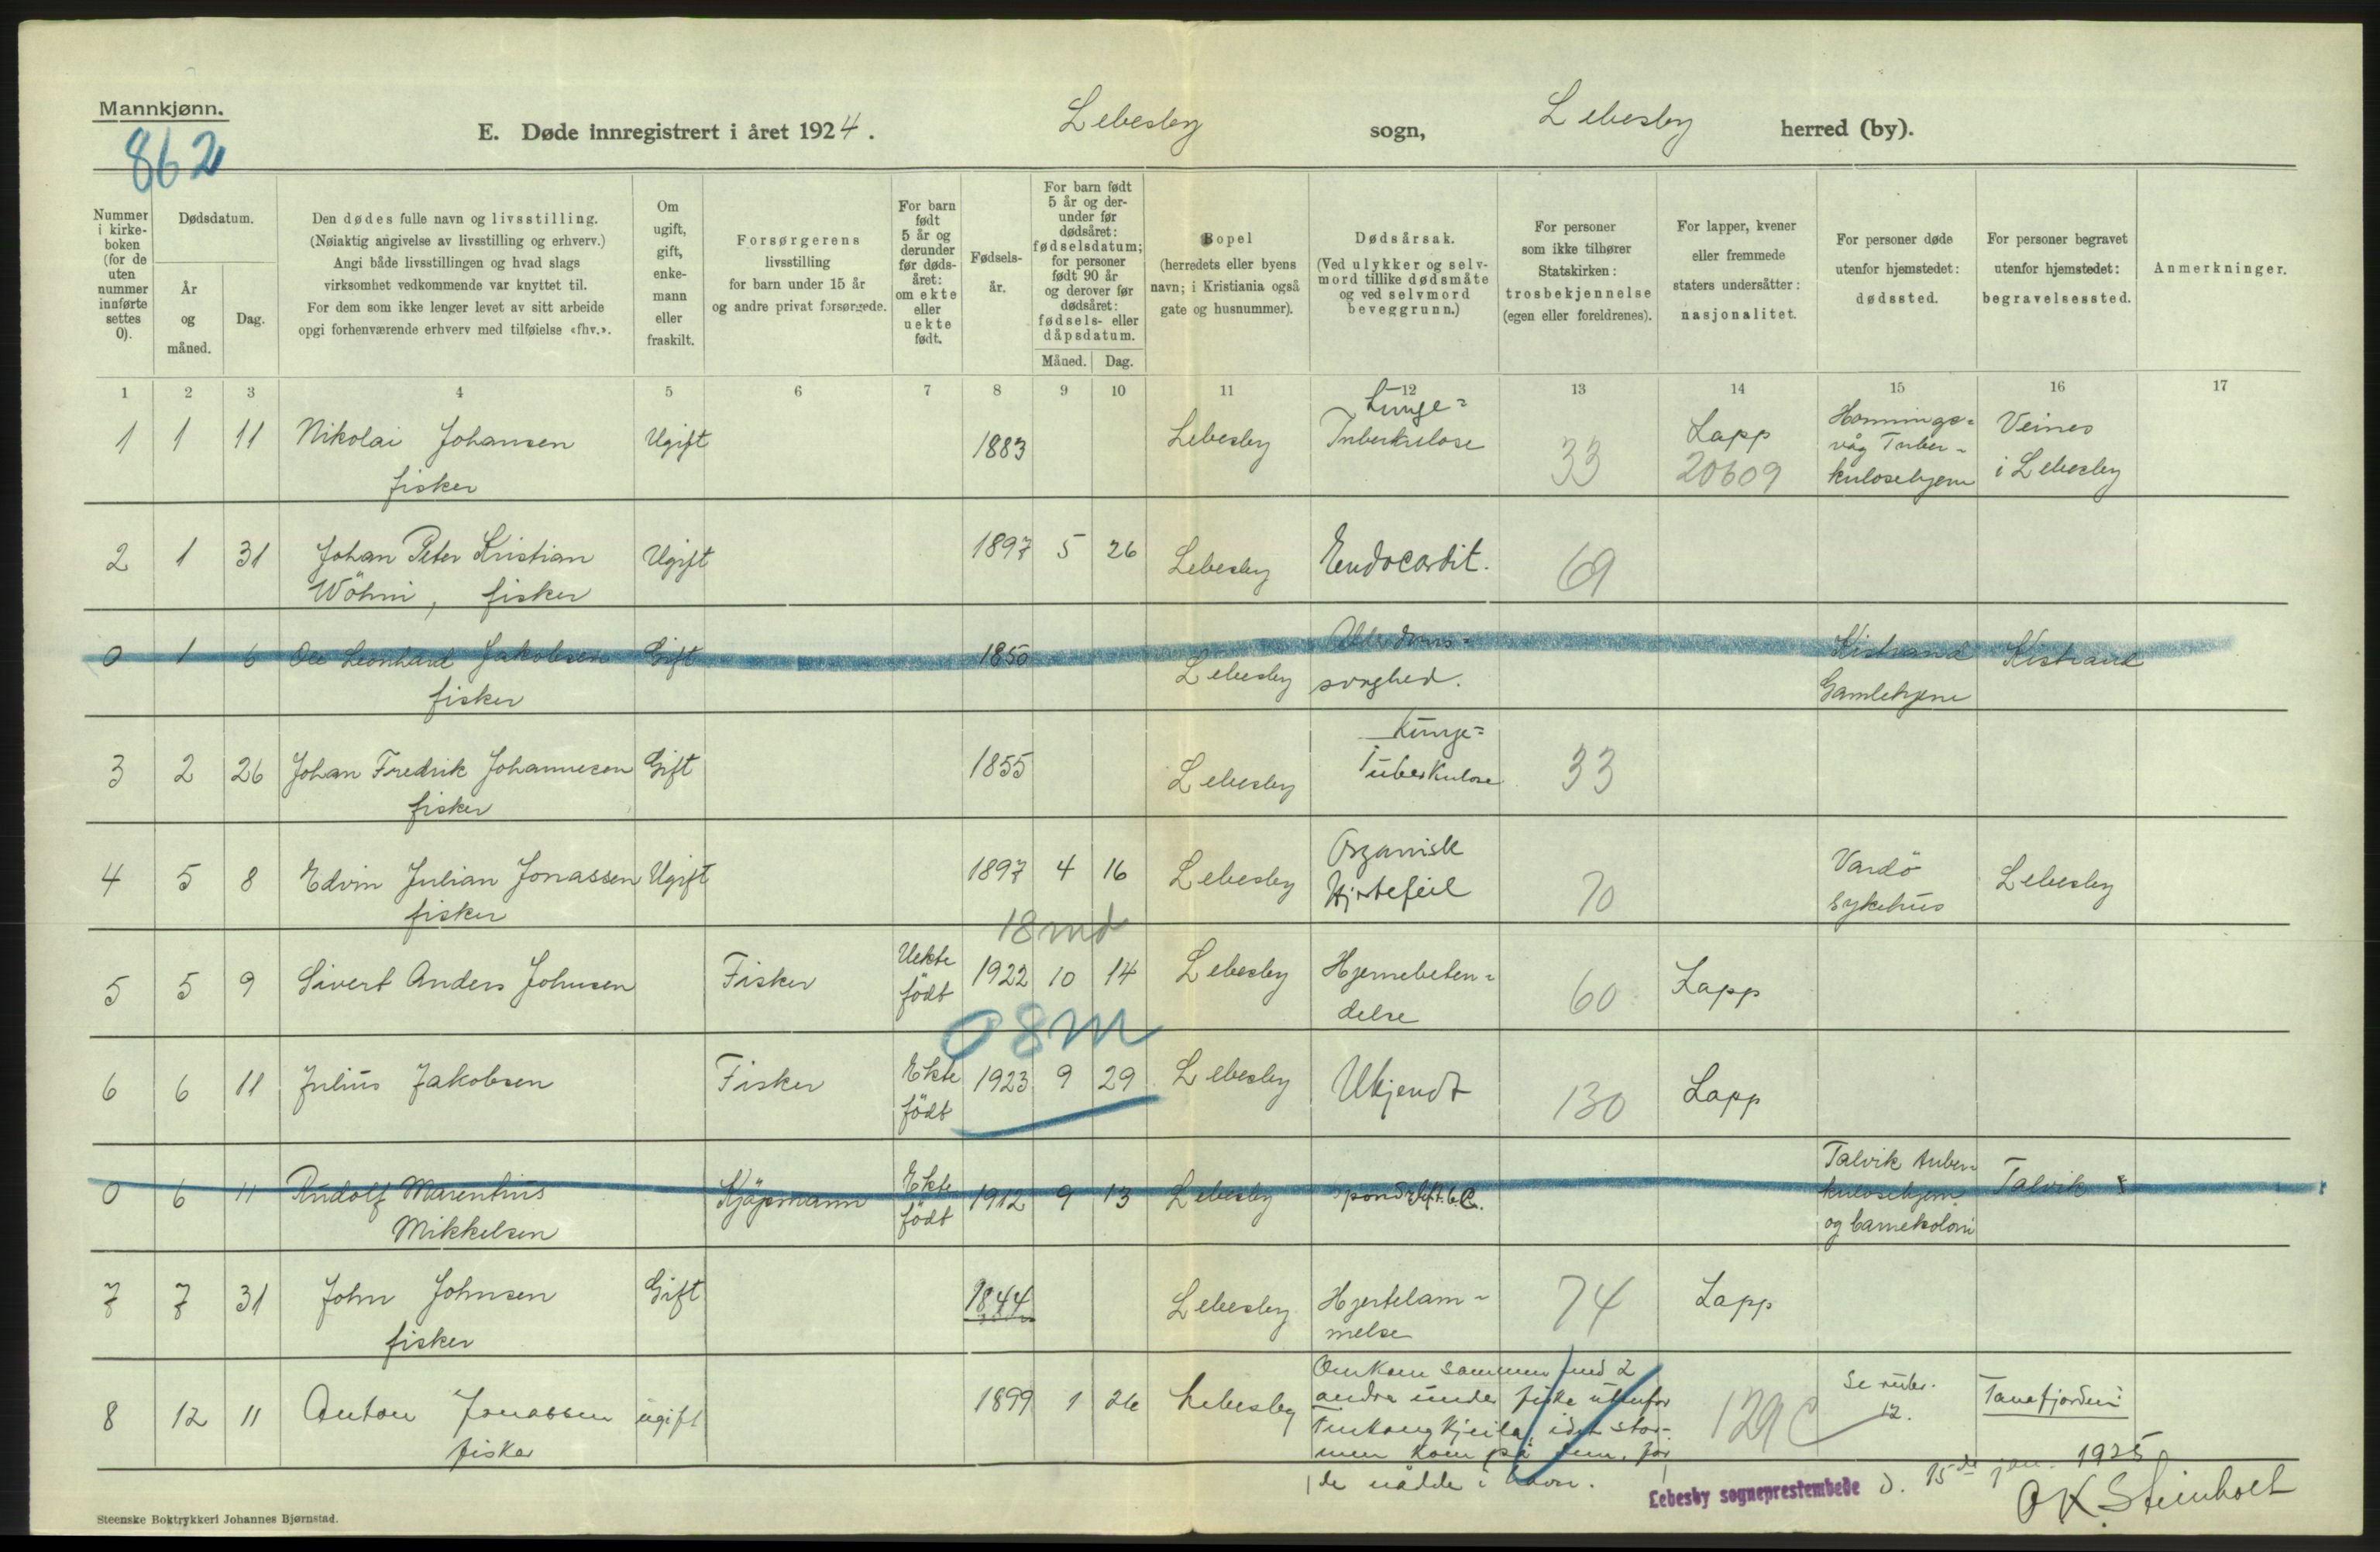 Mannkjønn.
862
E. Døde innregistrert i året 1924. Lebesby sogn, Lebesby herred (by).
Nummer i kirke- boken (for de uten nummer innførte settes 0).
Dødsdatum.
År og måned.
Dag.
Den dødes fulle navn og livsstilling.
(Nøiaktig angivelse av livsstilling og erhverv.)
Angi både livsstillingen og hvad slags
virksomhet vedkommende var knyttet til.
For dem som ikke lenger levet av sitt arbeide
opgi forhenværende erhverv med tilføielse «fhv.».
Om ugift, gift, enke- mann eller fraskilt.
Forsørgerens
livsstilling
for barn under 15 år
og andre privat forsørgede.
For barn født 5 år og derunder før døds- året: om ekte eller uekte født.
Fødsels- år.
For barn født 5 år og der- under før dødsåret: fødselsdatum; for personer født 90 år og derover før dødsåret: fødsels- eller dåpsdatum.
Måned. Dag.
Bopel
(herredets eller byens
navn; i Kristiania også
gate og husnummer).
Dødsårsak.
(Ved ulykker og selv-
mord tillike dødsmåte
og ved selvmord
beveggrunn.)
For personer
som ikke tilhører
Statskirken:
trosbekjennelse
(egen eller foreldrenes).
For lapper, kvener
eller fremmede
staters undersåtter:
nasjonalitet.
For personer døde
utenfor hjemstedet:
dødssted.
For personer begravet
utenfor hjemstedet:
begravelsessted.
Anmerkninger.
1 2 3 4 5 6 7 8 9 10 11 12 13 14 15 16 17
1 1 11 Nikolai Johansen Ugift 1883 Lebesby Lunge= Tuberkulose 33 Lapp Honnings= Veines
fisker 20609 våg Tuber- kulosehjem i Lebesby
2 1 31 Johan Peter Kristian Ugift 1897 5 26 Lebesby Endocardit. 69
Wöhni, fisker
0 1 6 Ole Leonhard Jakobsen Gift 1850 Lebesby Alderdoms= Kistrand Kistrand
fisker svaghed. Gamlehjem
3 2 26 Johan Fredrik Johannesen Gift 1855 Lebesby Lunge= Tuberkulose 33
fisker
4 5 8 Edvin Julian Jonassen Ugift 1897 4 16 Lebesby Organisk Hjertefeil 70 Vardö sykehus Lebesby
fisker
18 md
5 5 9 Sivert Anders Johnsen Fisker Uekte født 1922 10 14 Lebesby Hjernebeten= delse 60 Lapp
08m
6 6 11 Julius Jakobsen Fisker Ekte født 1923 9 29 Lebesby Ukjendt 130 Lapp
0 6 11 Rudolf Marenthius Kjøpmann Ekte født 1912 9 13 Lebesby Talvik tuber= Talvik
Mikkelsen kulosehjem og barnekoloni
7 7 31 John Johnsen Gift 1844 Lebesby Hjertelam- melse 74 Lapp
fisker
8 12 11 Anton Jonassen ugift 1899 1 26 Lebesby Omkom sammen med 2 129c Se rubr. 12. Tanafjorden
fisker andre under fiske utenfor
idet stor-
men kom på dem, før
de nådde i havn.
Lebesby sogneprestembede d. 15de jan. 1925
O K Steinholt
Steenske Boktrykkeri Johannes Bjørnstad.